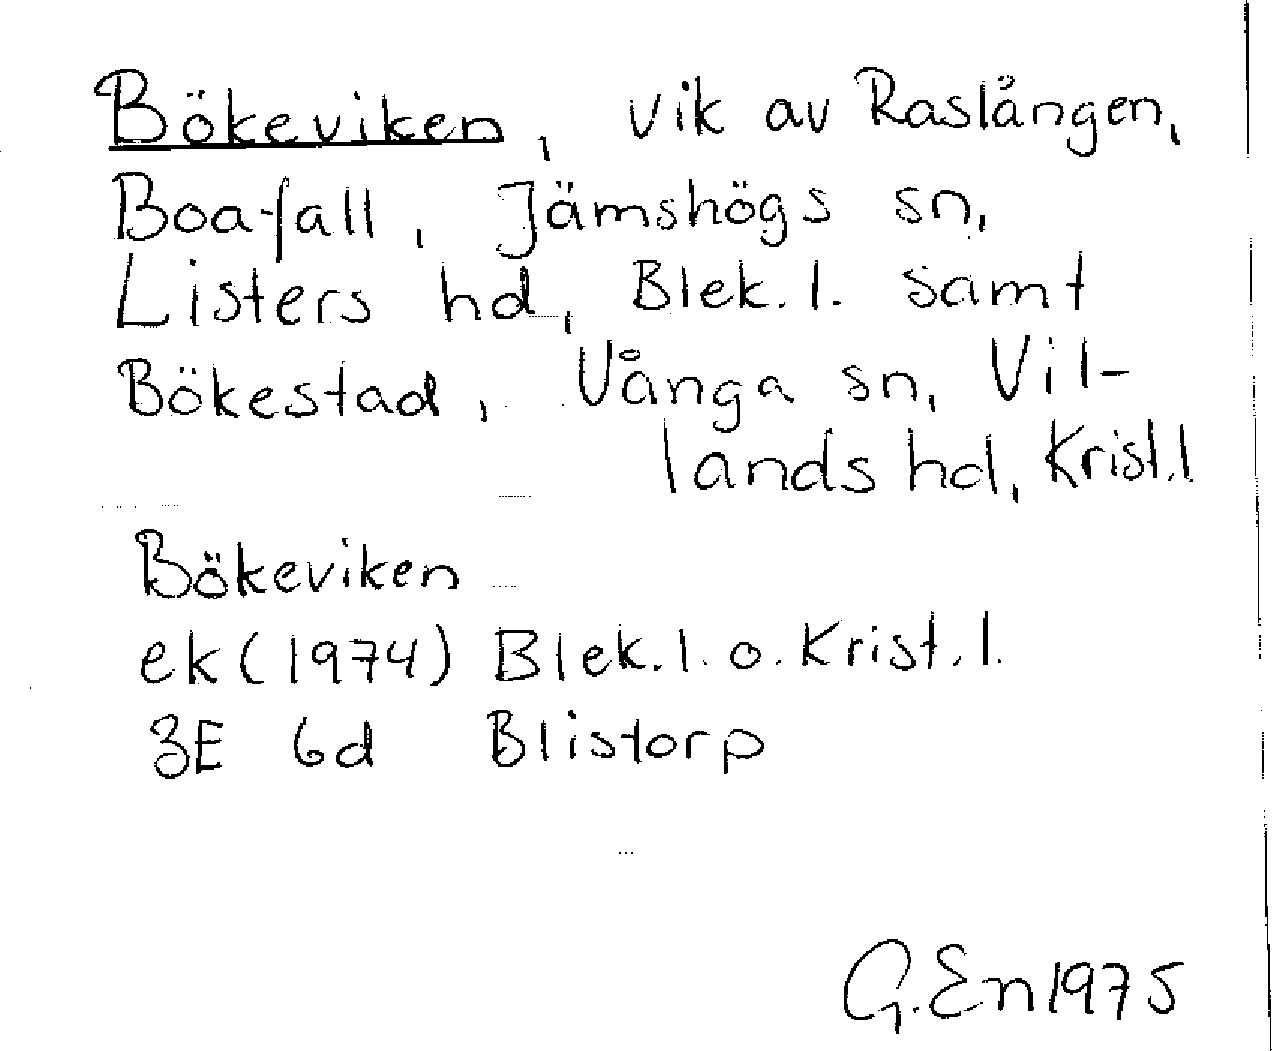 Bökeviken, vik av Raslången,
Boafall, Jämshögs sn,
Listers hd, Blek. l. samt
Bökestad, Vånga sn, Vil-
lands hd, Krist. l
Bökeviken
ek (1974) Blek. l. o. Krist. l.
3E 6d Blistorp
G. En 1975